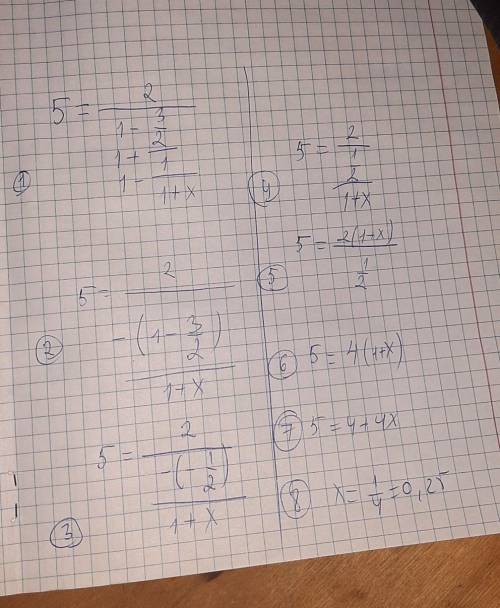 ① 5 = 2 / (1 - 3/2 / (1 + 1 / (1 - 1/(1+x))))
② 5 = 2 / (-(1 - 3/2) / (1+x))
③ 5 = 2 / (-(-1/2) / (1+x))
④ 5 = 2 / (1/2 / (1+x))
⑤ 5 = 2(1+x) / (1/2)
⑥ 5 = 4(1+x)
⑦ 5 = 4 + 4x
⑧ x = 1/4 = 0,25